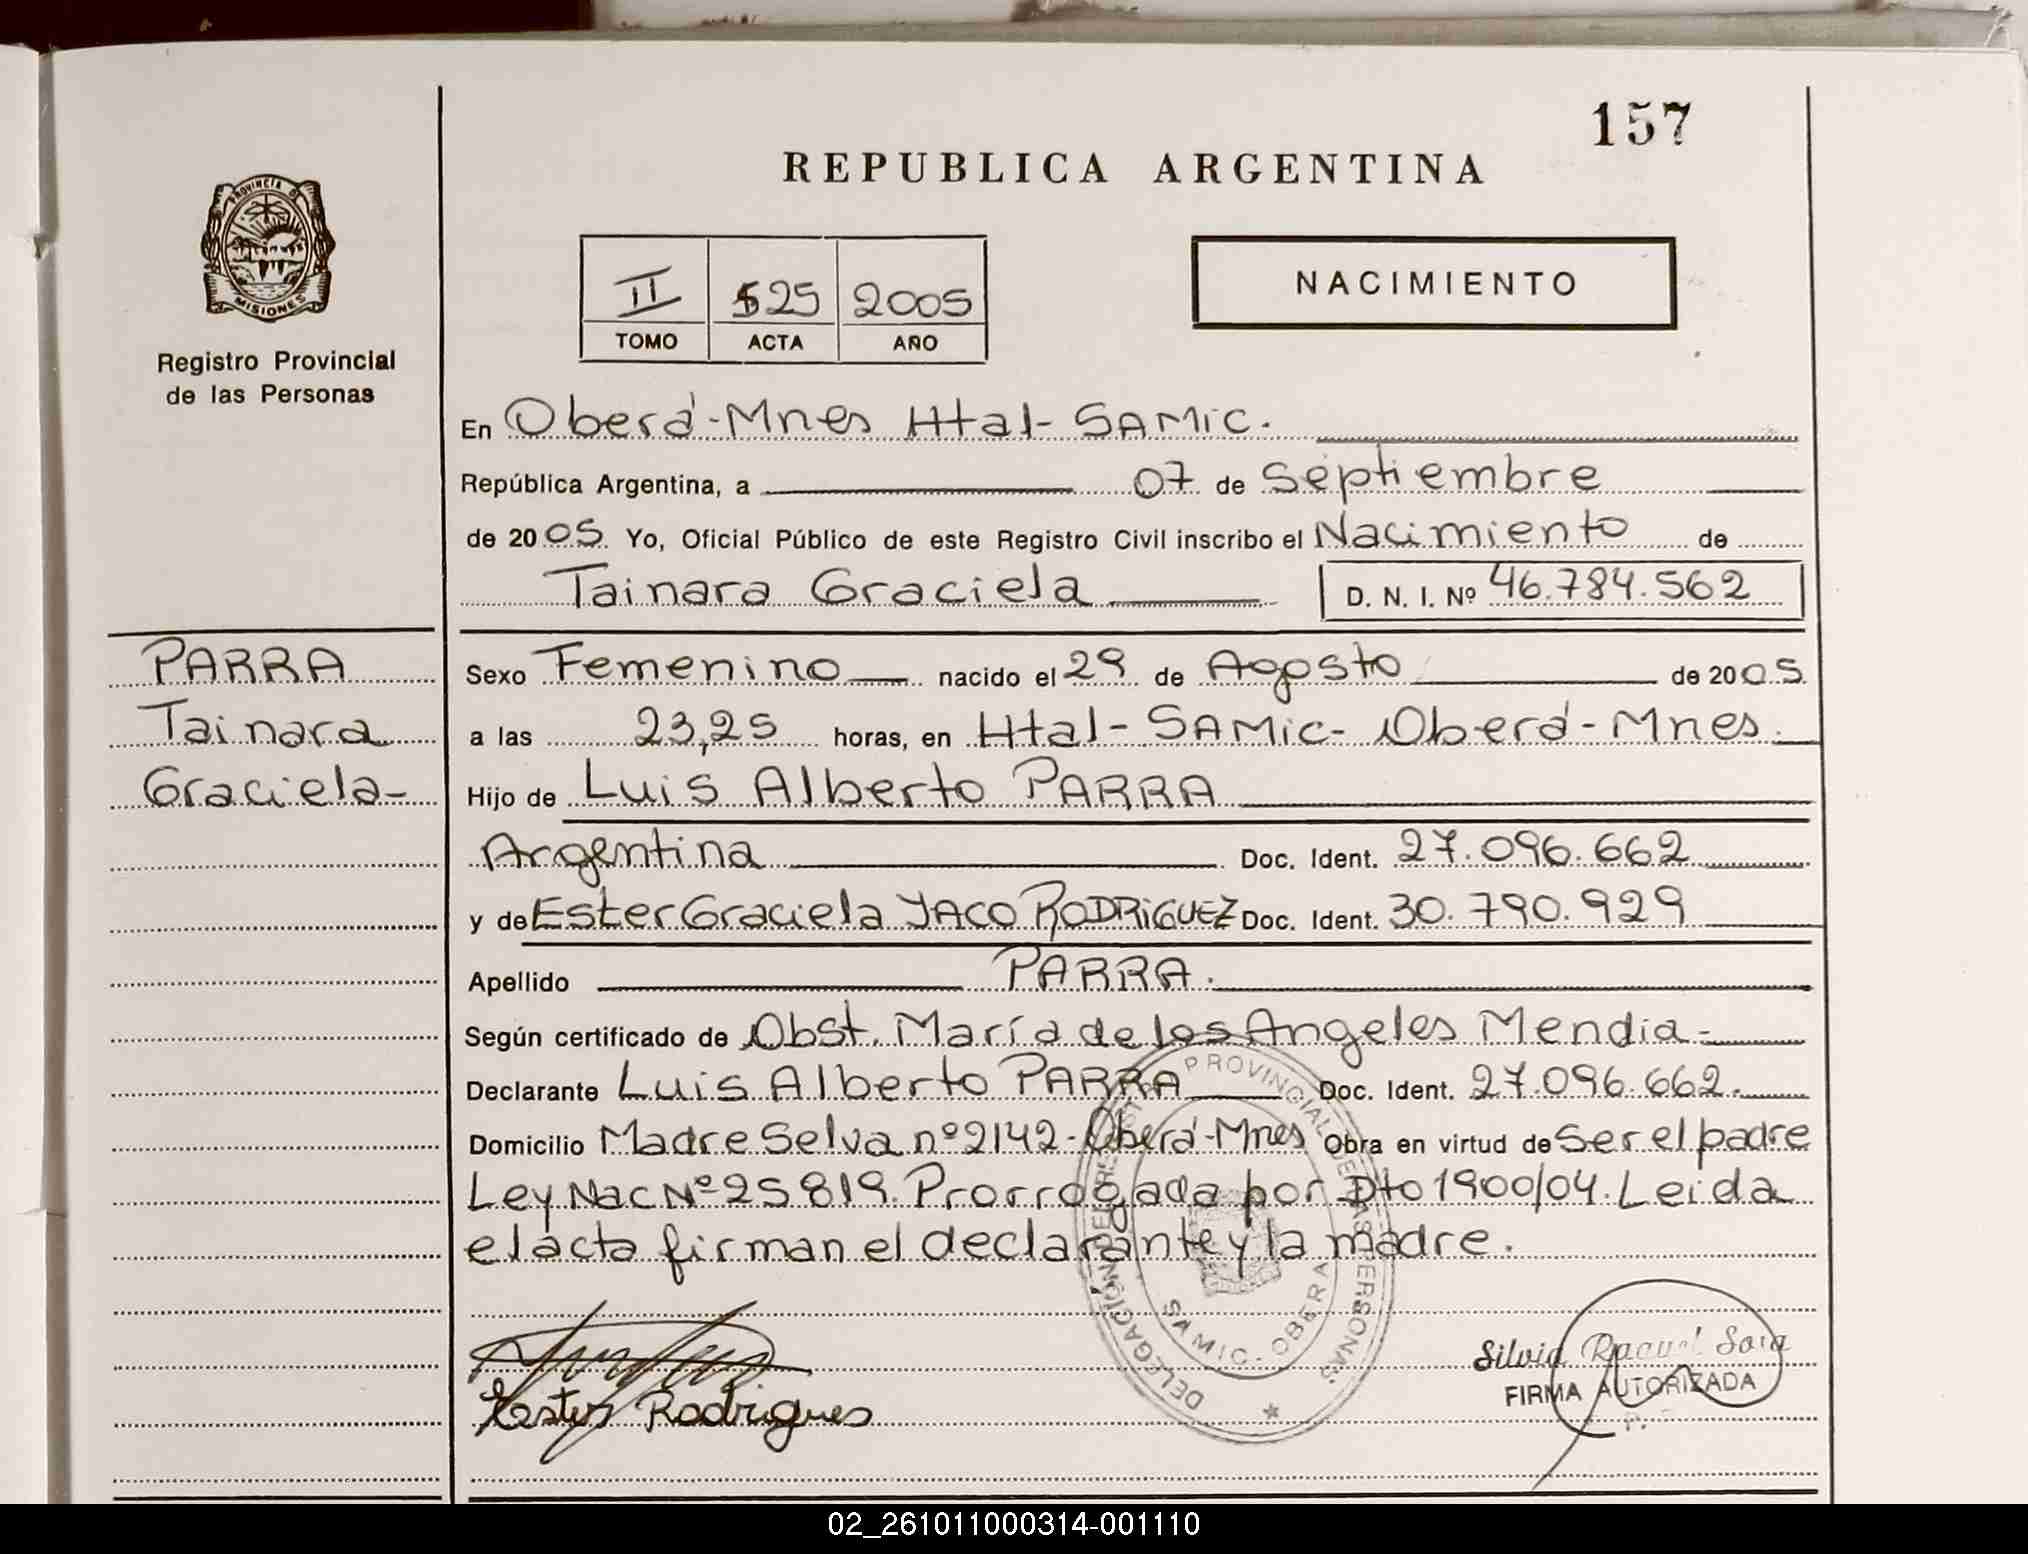 157
REPUBLICA ARGENTINA
PROVINCIA DE
MISIONES
Registro Provincial
de las Personas
II 525 2005
TOMO ACTA AÑO
NACIMIENTO
En Oberá-Mnes Htal-SAMic.
República Argentina, a 07 de Septiembre
de 2005 Yo, Oficial Público de este Registro Civil inscribo el Nacimiento de
Tainara Graciela D. N. I. Nº 46.784.562
PARRA
Tainara
Graciela-
Sexo Femenino nacido el 29 de Agosto de 2005
a las 23,25 horas, en Htal-SAMic- Oberá-Mnes.
Hijo de Luis Alberto PARRA
Argentina Doc. Ident. 27.096.662
y de Ester Graciela YACO RODRiGUEZ Doc. Ident. 30.790.929
Apellido PARRA.
Según certificado de Obst. María de los Angeles Mendia-
Declarante Luis Alberto PARRA Doc. Ident. 27.096.662.
Domicilio Madre Selva nº 2142-Oberá-Mnes Obra en virtud de Ser el padre
Ley Nac Nº 25819. Prorrogada por Dto 1900/04. Leida
el acta firman el declarante y la madre.
PROVINCIAL DE LAS PERSONAS
DELEGACIÓN DEL REGIST
SAMIC-OBERA
Rodrigues
Silvia Raquel
FIRMA AUTORIZADA
02_261011000314-001110